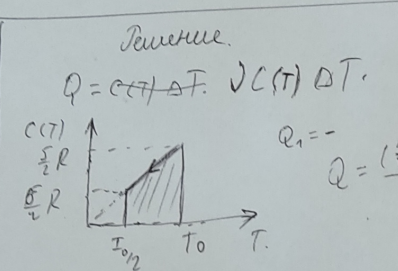 Решение.
Q = C(T) ΔT. νC(T) ΔT.
C(T)
5/2 R
Q₁ = -
Q = (
R
T₀/2 T₀ T.